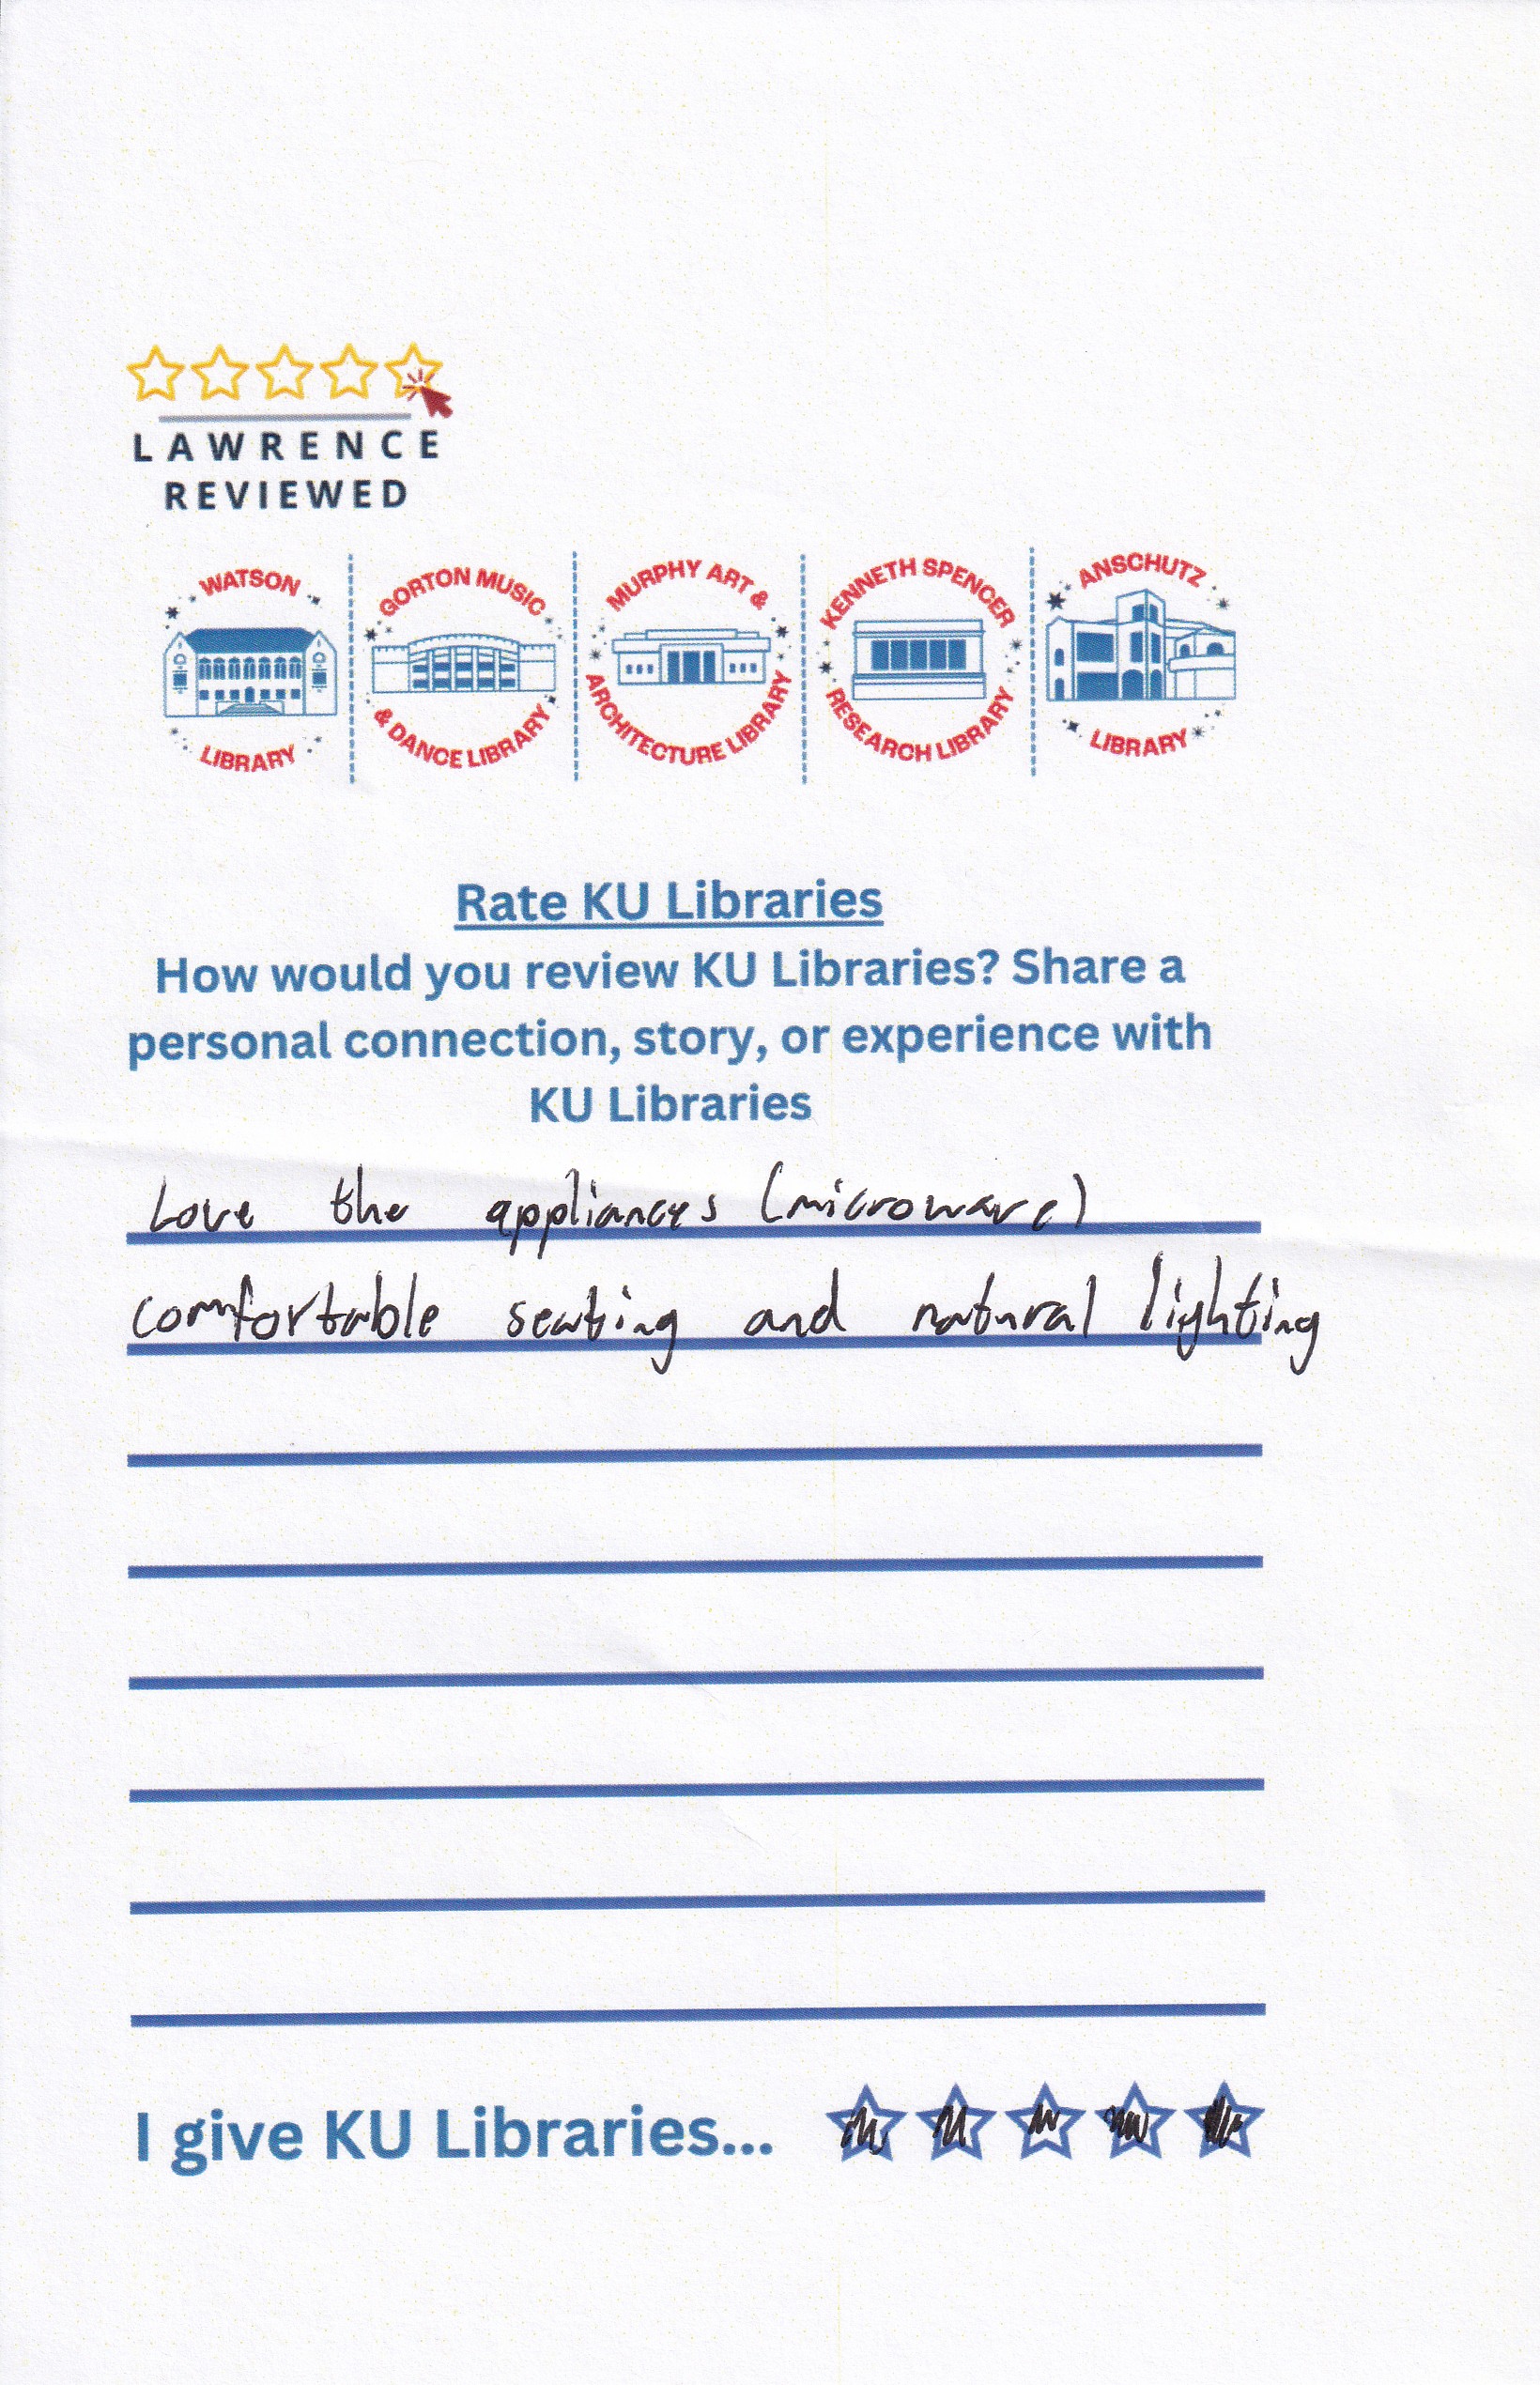 LAWRENCE
REVIEWED
WATSON LIBRARY
GORTON MUSIC & DANCE LIBRARY
MURPHY ART & ARCHITECTURE LIBRARY
KENNETH SPENCER RESEARCH LIBRARY
ANSCHUTZ LIBRARY
Rate KU Libraries
How would you review KU Libraries? Share a
personal connection, story, or experience with
KU Libraries
Love the appliances (microwave)
comfortable seating and natural lighting
I give KU Libraries...